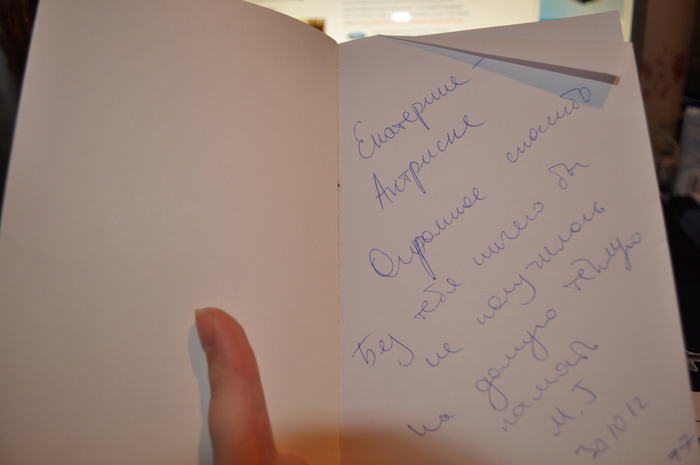 Екатерине -
Актрисе
Огромное спасибо
Без тебя ничего бы
не получилось
На долгую тёплую
память
М. Г.
30 10 12